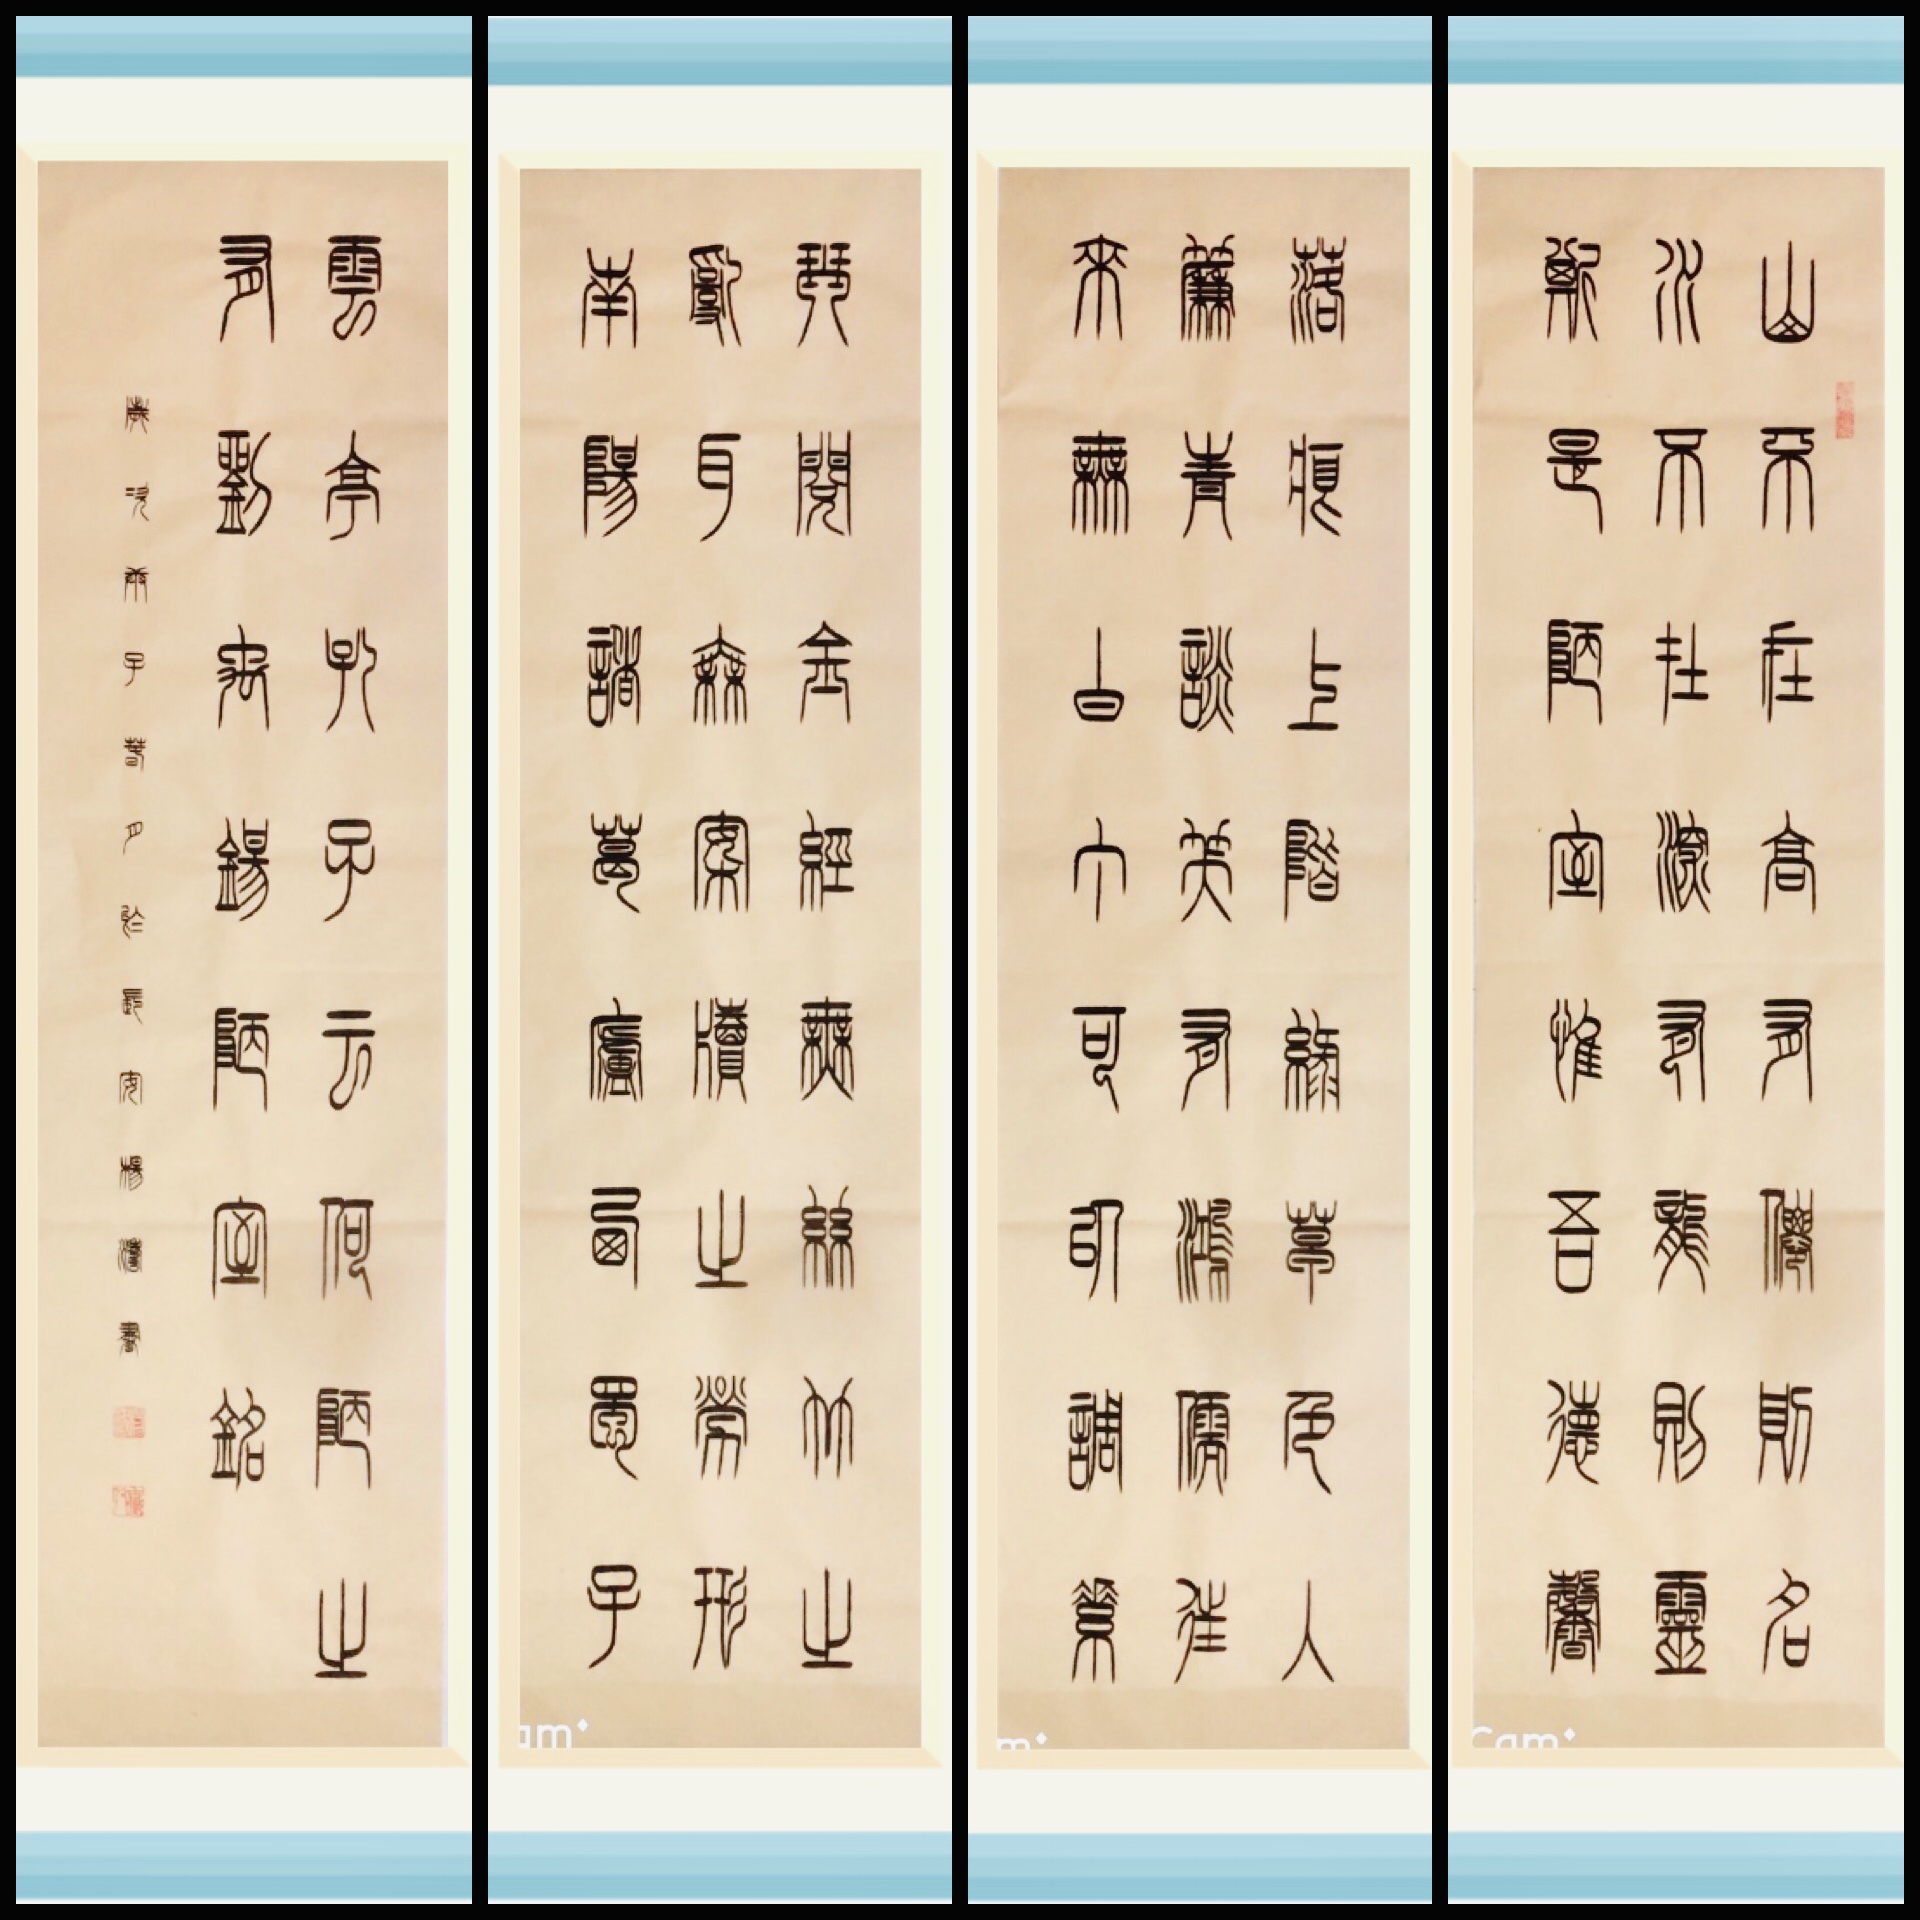 山不在高有僊則名
水不在深有龍則靈
斯是陋室惟吾德馨
落痕上階綠草色人
簾青談笑有鴻儒往
來無白丁可以調素
琴閱金經無絲竹之
亂耳無案牘之勞形
南陽諸葛廬西蜀子
雲亭孔子云何陋之
有劉禹錫陋室銘
歲次子春月於長安楊書